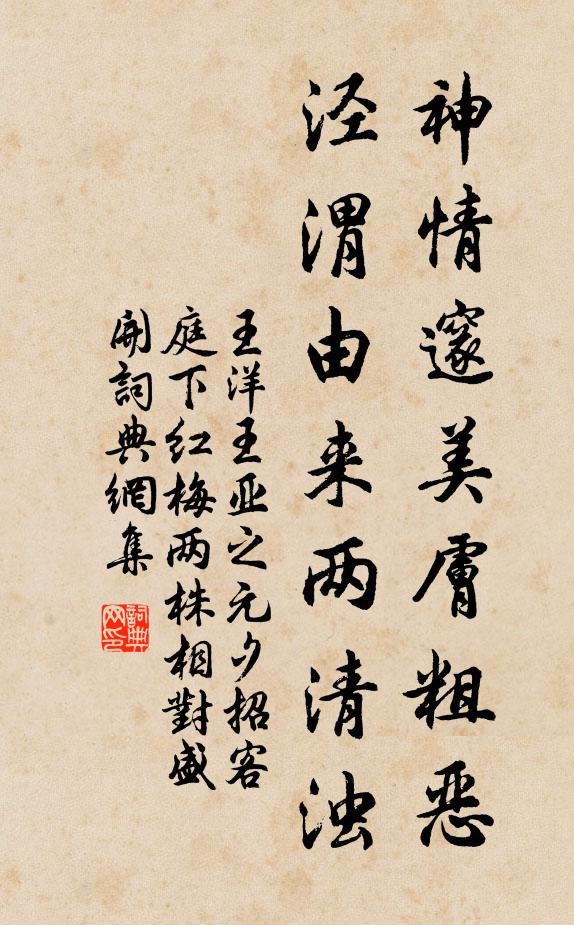 神情邃美膚粗恶
泾渭由来两清浊
王洋王亚之元夕招客
庭下红梅两株相對盛
開詞典網集
詞典网印